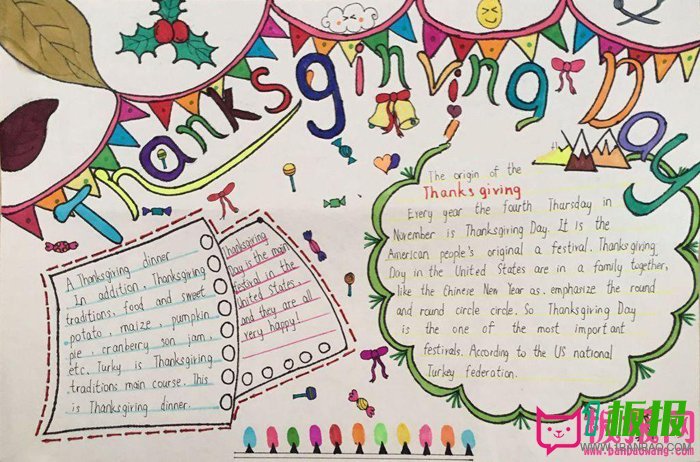 Thanksgiving Day
The origin of the
Thanksgiving
Every year the fourth Thursday in
November is Thanksgiving Day. It is the
American people's original a festival. Thanksgiving
Day in the United States are in a family together,
like the Chinese New Year as. emphasize the round
and round circle circle. So Thanksgiving Day
is the one of the most important
festivals. According to the US national
Turkey federation.
A Thanksgiving dinner
In addition, Thanksgiving
traditions. food and sweet
potato, maize, pumpkin
pie, cranberry son jam,
etc. Turky is Thanksgiving
traditions main course. This
is Thanksgiving dinner.
Thanksgiving
Day is the main
festival in the
United States.
and they are all
very happy!
板报网
www.banbaowang.com
板报
WWW.1BANBAO.COM